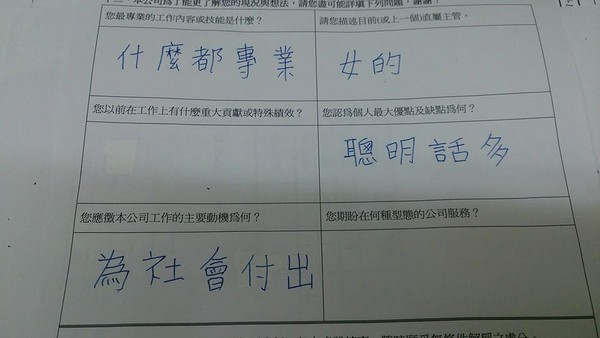 本公司為了能更了解您的現況與想法，請您盡可能詳填下列問題，謝謝！
您最專業的工作內容或技能是什麼？
請您描述目前(或上一個)直屬主管。
什麼都專業
女的
您以前在工作上有什麼重大貢獻或特殊績效？
您認爲個人最大優點及缺點爲何？
聰明話多
您應徵本公司工作的主要動機爲何？
您期盼在何種型態的公司服務？
為社會付出